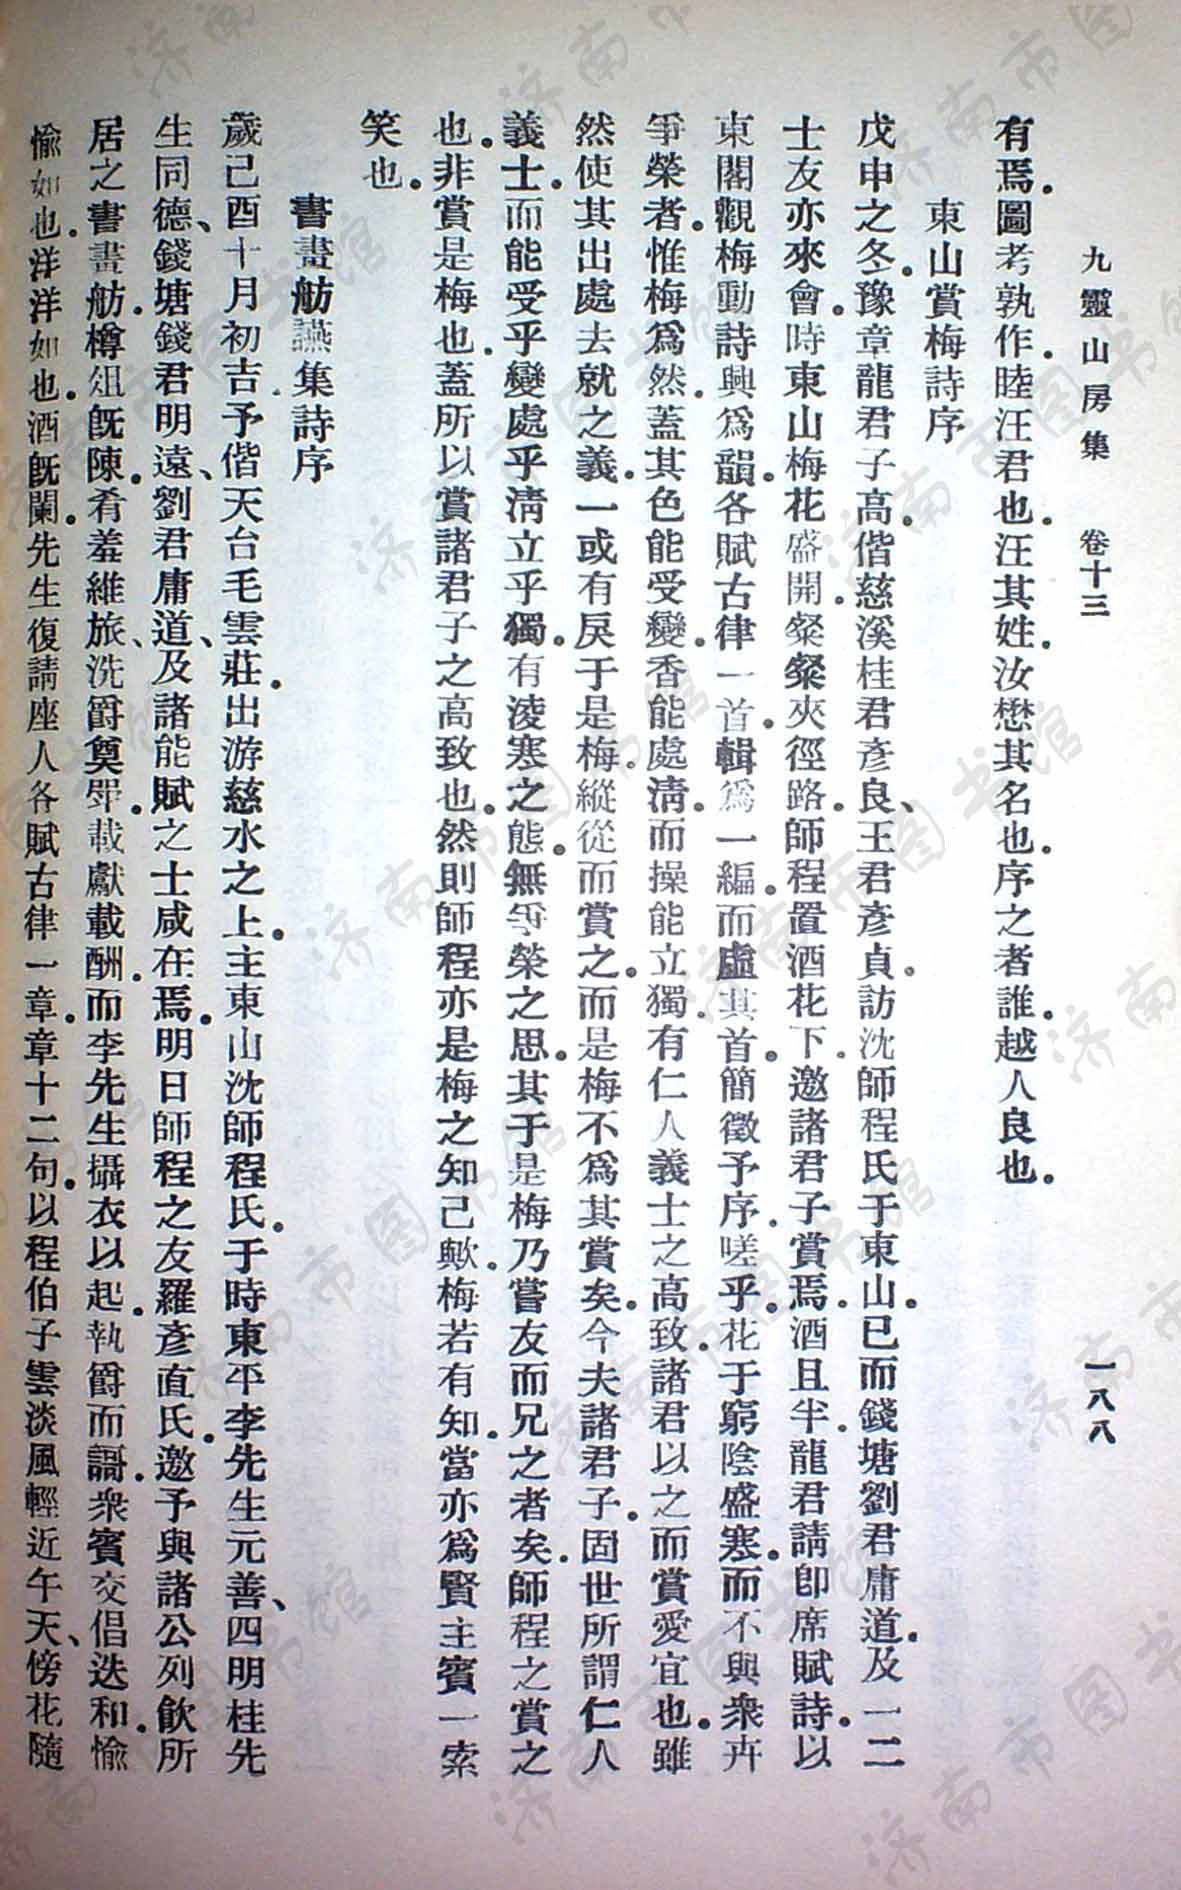 九靈山房集 卷十三 一八八
有焉。圖考孰作。睦汪君也。汪其姓。汝懋其名也。序之者誰。越人良也。
東山賞梅詩序
戊申之冬。豫章龍君子高。偕慈溪桂君彥良、王君彥貞。訪沈師程氏于東山。已而錢塘劉君庸道。及一二
士友亦來會。時東山梅花盛開。粲粲夾徑路。師程置酒花下。邀諸君子賞焉。酒且半。龍君請卽席賦詩。以
東閣觀梅動詩興爲韻。各賦古律一首。輯爲一編。而虛其首簡徵予序。嗟乎。花于窮陰盛寒。而不與衆卉
爭榮者。惟梅爲然。蓋其色能受變。香能處淸。而操能立獨。有仁人義士之高致。諸君以之而賞愛宜也。雖
然使其出處去就之義。一或有戾于是梅。縱從而賞之。而是梅不爲其賞矣。今夫諸君子。固世所謂仁人
義士。而能受乎變處乎淸立乎獨。有淩寒之態。無爭榮之思。其于是梅乃嘗友而兄之者矣。師程之賞之
也。非賞是梅也。蓋所以賞諸君子之高致也。然則師程亦是梅之知己歟。梅若有知。當亦爲賢主賓一索
笑也。
書畫舫讌集詩序
歲己酉十月初吉。予偕天台毛雲莊。出游慈水之上。主東山沈師程氏。于時東平李先生元善、四明桂先
生同德、錢塘錢君明遠、劉君庸道、及諸能賦之士咸在焉。明日師程之友羅彥直氏。邀予與諸公列飮所
居之書畫舫。樽俎旣陳。肴羞維旅。洗爵奠斝。載獻載酬。而李先生攝衣以起。執爵而謌。衆賓交倡迭和。愉
愉如也。洋洋如也。酒旣闌。先生復請座人各賦古律一章。章十二句。以程伯子雲淡風輕近午天、傍花隨